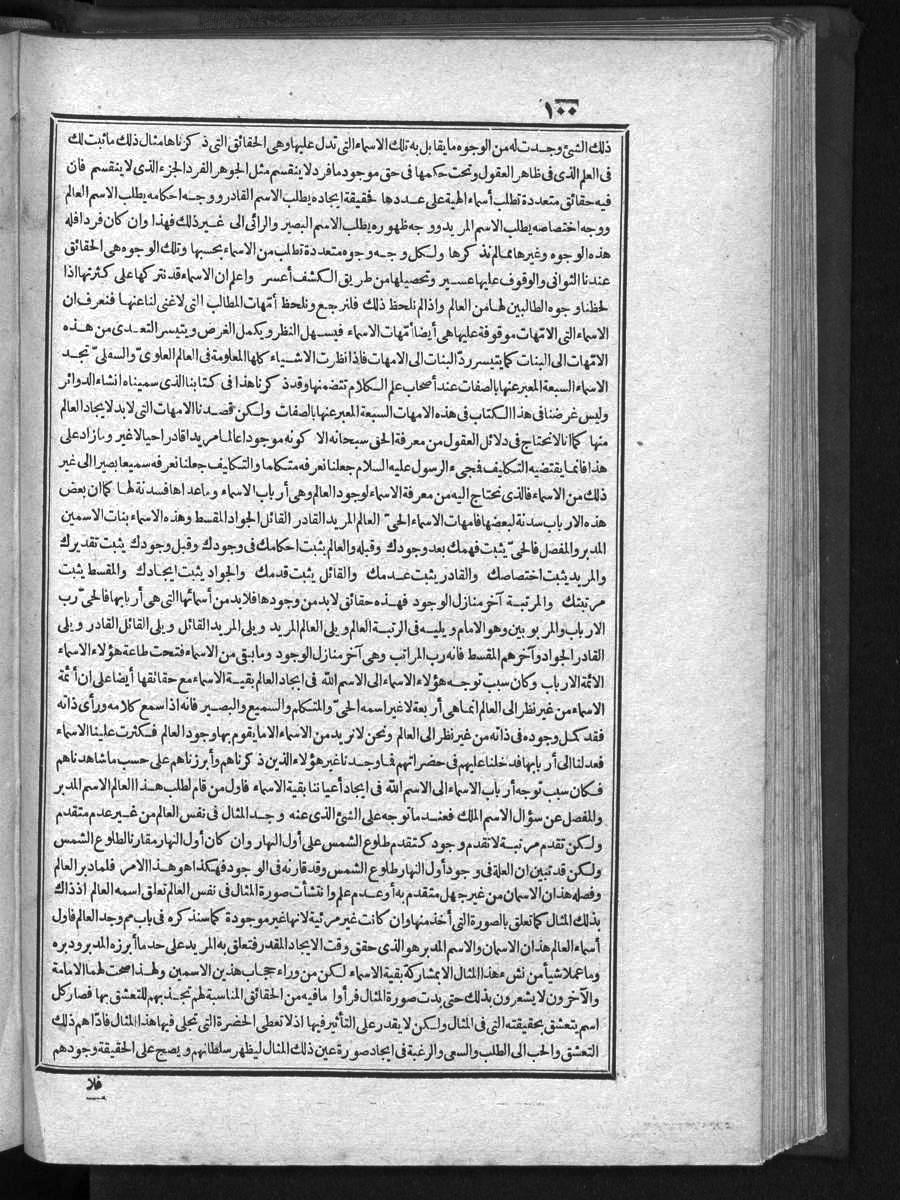 ١٠٠
ذلك الشئ وجدت له من الوجوه ما يقابل به تلك الاسماء التى تدل عليها وهى الحقائق التى ذكرناها مثال ذلك ما ثبت لك
فى العلم الذى فى ظاهر العقول وتحت حكمها فى حق موجود ما فرد لا ينقسم مثل الجوهر الفرد الجزء الذى لا ينقسم فان
فيه حقائق متعددة تطلب أسماء الهية على عددها فحقيقة ايجاده يطلب الاسم القادر ووجه احكامه يطلب الاسم العالم
ووجه اختصاصه يطلب الاسم المريد ووجه ظهوره يطلب الاسم البصير والرائى الى غير ذلك فهذا وان كان فردا فله
هذه الوجوه وغيرها مما لم نذكرها ولكل وجه وجوه متعددة تطلب من الاسماء بحسبها وتلك الوجوه هى الحقائق
عندنا الثوانى والوقوف عليها عسير وتحصيلها من طريق الكشف أعسر واعلم ان الاسماء قد نتركها على كثرتها اذا
لحظنا وجوه الطالبين لها من العالم واذا لم نلحظ ذلك فلنرجع ونلحظ أمّهات المطالب التى لا غنى لنا عنها فنعرف ان
الاسماء التى الامّهات موقوفة عليها هى أيضا أمّهات الاسماء فيسهل النظر ويكمل الغرض ويتيسر التعدى من هذه
الامّهات الى البنات كما يتيسر ردّ البنات الى الامهات فاذا نظرت الاشياء كلها المعلومة فى العالم العلوى والسفلىّ تجد
الاسماء السبعة المعبر عنها بالصفات عند أصحاب علم الكلام تتضمنها وقد ذكرنا هذا فى كتابنا الذى سميناه انشاء الدوائر
وليس غرضنا فى هذا الكتاب فى هذه الامهات السبعة المعبر عنها بالصفات ولكن قصدنا الامهات التى لا بد لايجاد العالم
منها كما انا لانحتاج فى دلائل العقول من معرفة الحق سبحانه الا كونه موجودا عالما مريدا قادرا حيا لاغير وما زاد على
هذا فانما يقتضيه التكليف فمجىء الرسول عليه السلام جعلنا نعرفه متكلما والتكليف جعلنا نعرفه سميعا بصيرا الى غير
ذلك من الاسماء فالذى نحتاج اليه من معرفة الاسماء لوجود العالم وهى أرباب الاسماء وما عداها فسدنة لها كما ان بعض
هذه الارباب سدنة لبعضها فامهات الاسماء الحىّ العالم المريد القادر القائل الجواد المقسط وهذه الاسماء بنات الاسمين
المدبر والمفصل فالحىّ يثبت فهمك بعد وجودك وقبله والعالم يثبت احكامك فى وجودك وقبل وجودك يثبت تقديرك
والمريد يثبت اختصاصك والقادر يثبت عدمك والقائل يثبت قدمك والجواد يثبت ايجادك والمقسط يثبت
مرتبتك والمرتبة آخر منازل الوجود فهذه حقائق لابد من وجودها فلابد من أسمائها التى هى أربابها فالحىّ رب
الارباب والمربوبين وهو الامام ويليه فى الرتبة العالم ويلى العالم المريد ويلى المريد القائل ويلى القائل القادر ويلى
القادر الجواد وآخرهم المقسط فانه رب المراتب وهى آخر منازل الوجود وما بقى من الاسماء فتحت طاعة هؤلاء الاسماء
الائمة الارباب وكان سبب توجه هؤلاء الاسماء الى الاسم الله فى ايجاد العالم بقية الاسماء مع حقائقها أيضا على ان أئمة
الاسماء من غير نظر الى العالم انما هى أربعة لاغير اسمه الحىّ والمتكلم والسميع والبصير فانه اذا سمع كلامه ورأى ذاته
فقد كمل وجوده فى ذاته من غير نظر الى العالم ونحن لانريد من الاسماء الا ما يقوم بها وجود العالم فكثرت علينا الاسماء
فعدلنا الى أربابها فدخلنا عليهم فى حضراتهم فما وجدنا غير هؤلاء الذين ذكرناهم وأبرزناهم على حسب ما شاهدناهم
فكان سبب توجه أرباب الاسماء الى الاسم الله فى ايجاد أعياننا بقية الاسماء فاول من قام لطلب هذا العالم الاسم المدبر
والمفصل عن سؤال الاسم الملك فعندما توجه على الشئ الذى عنه وجد المثال فى نفس العالم من غير عدم متقدم
ولكن تقدم مرتبة لا تقدم وجود كتقدم طلوع الشمس على أول النهار وان كان أول النهار مقارنا لطلوع الشمس
ولكن قد تبين ان العلة فى وجود أول النهار طلوع الشمس وقد قارنه فى الوجود فهكذا هو هذا الامر فلما دبر العالم
وفصله هذان الاسمان من غير جهل متقدم به أو عدم علم وانتشأت صورة المثال فى نفس العالم تعلق اسمه العالم اذ ذاك
بذلك المثال كما تعلق بالصورة التى أخذ منها وان كانت غير مرئية لانها غير موجودة كما سنذكره فى باب مم وجد العالم فاول
أسماء العالم هذان الاسمان والاسم المدبر هو الذى حقق وقت الايجاد المقدر فتعلق به المريد على حد ما أبرزه المدبر ودبره
وما عملا شيأ من نشء هذا المثال الا بمشاركة بقية الاسماء لكن من وراء حجاب هذين الاسمين ولهذا صحت لهما الامامة
والآخرون لا يشعرون بذلك حتى بدت صورة المثال فرأوا ما فيه من الحقائق المناسبة لهم تجذبهم للتعشق بها فصار كل
اسم يتعشق بحقيقته التى فى المثال ولكن لا يقدر على التأثير فيها اذ لا تعطى الحضرة التى تجلى فيها هذا المثال فادّاهم ذلك
التعشق والحب الى الطلب والسعى والرغبة فى ايجاد صورة عين ذلك المثال ليظهر سلطانهم ويصح على الحقيقة وجودهم
فلا